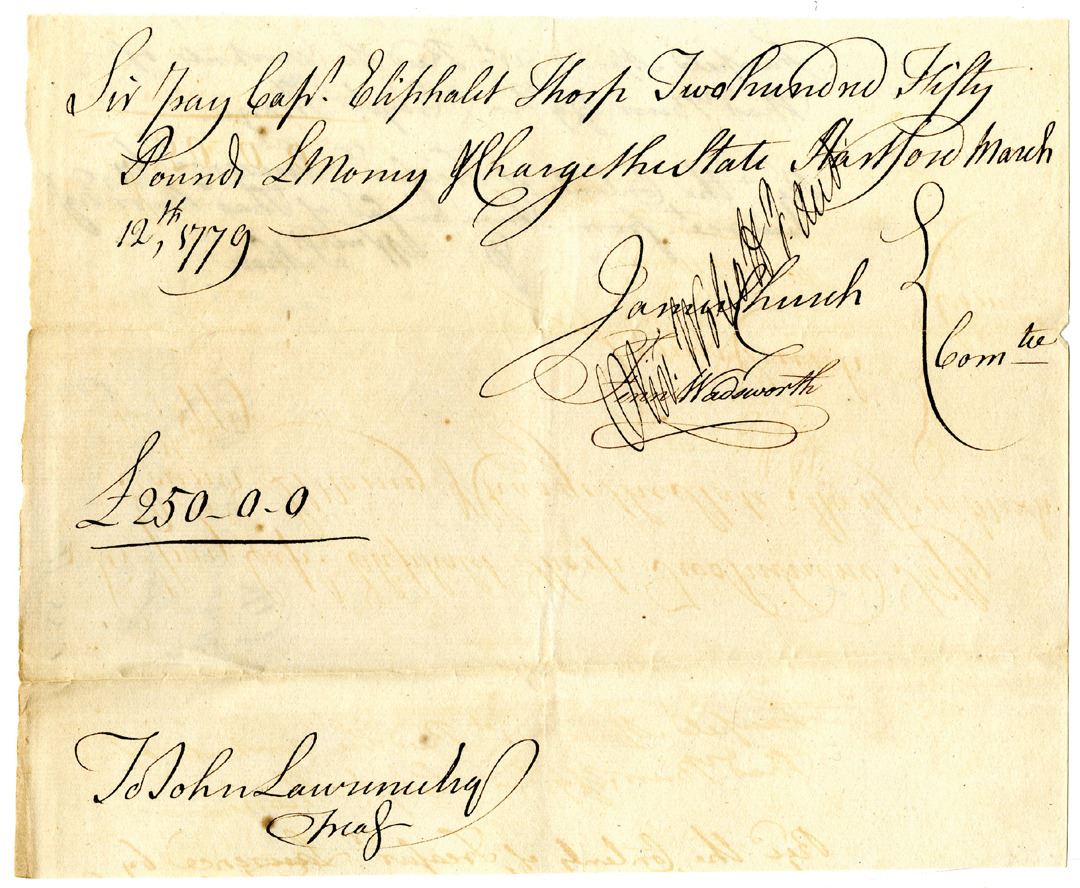 Sir Pay Capt. Eliphalet Thorp Two hundrd Fifty
Pounds LMoney & Charge the State Hartford March
12th, 1779
James Church
Finn. Wadsworth
Comtee
Oliv. Wolcott Jr.
£250-0-0
To John Lawrence Esq
Treasr